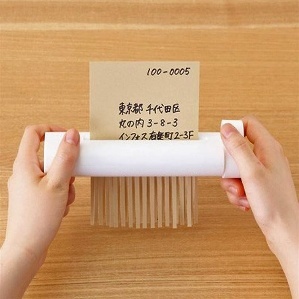 100-0005
東京都 千代田区
丸の内 3-8-3
インフォス有楽町2-3F